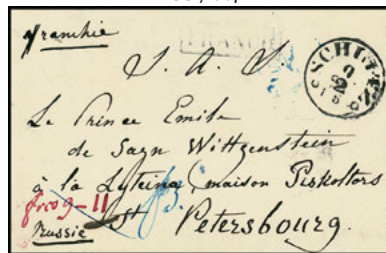 franchie
FRANCO
S. A. S.
SCHL
Le Prince Emile
de Sayn Wittgenstein
à la Liteina, maison Piskolkors
frco 9-11
St Petersbourg.
Russie